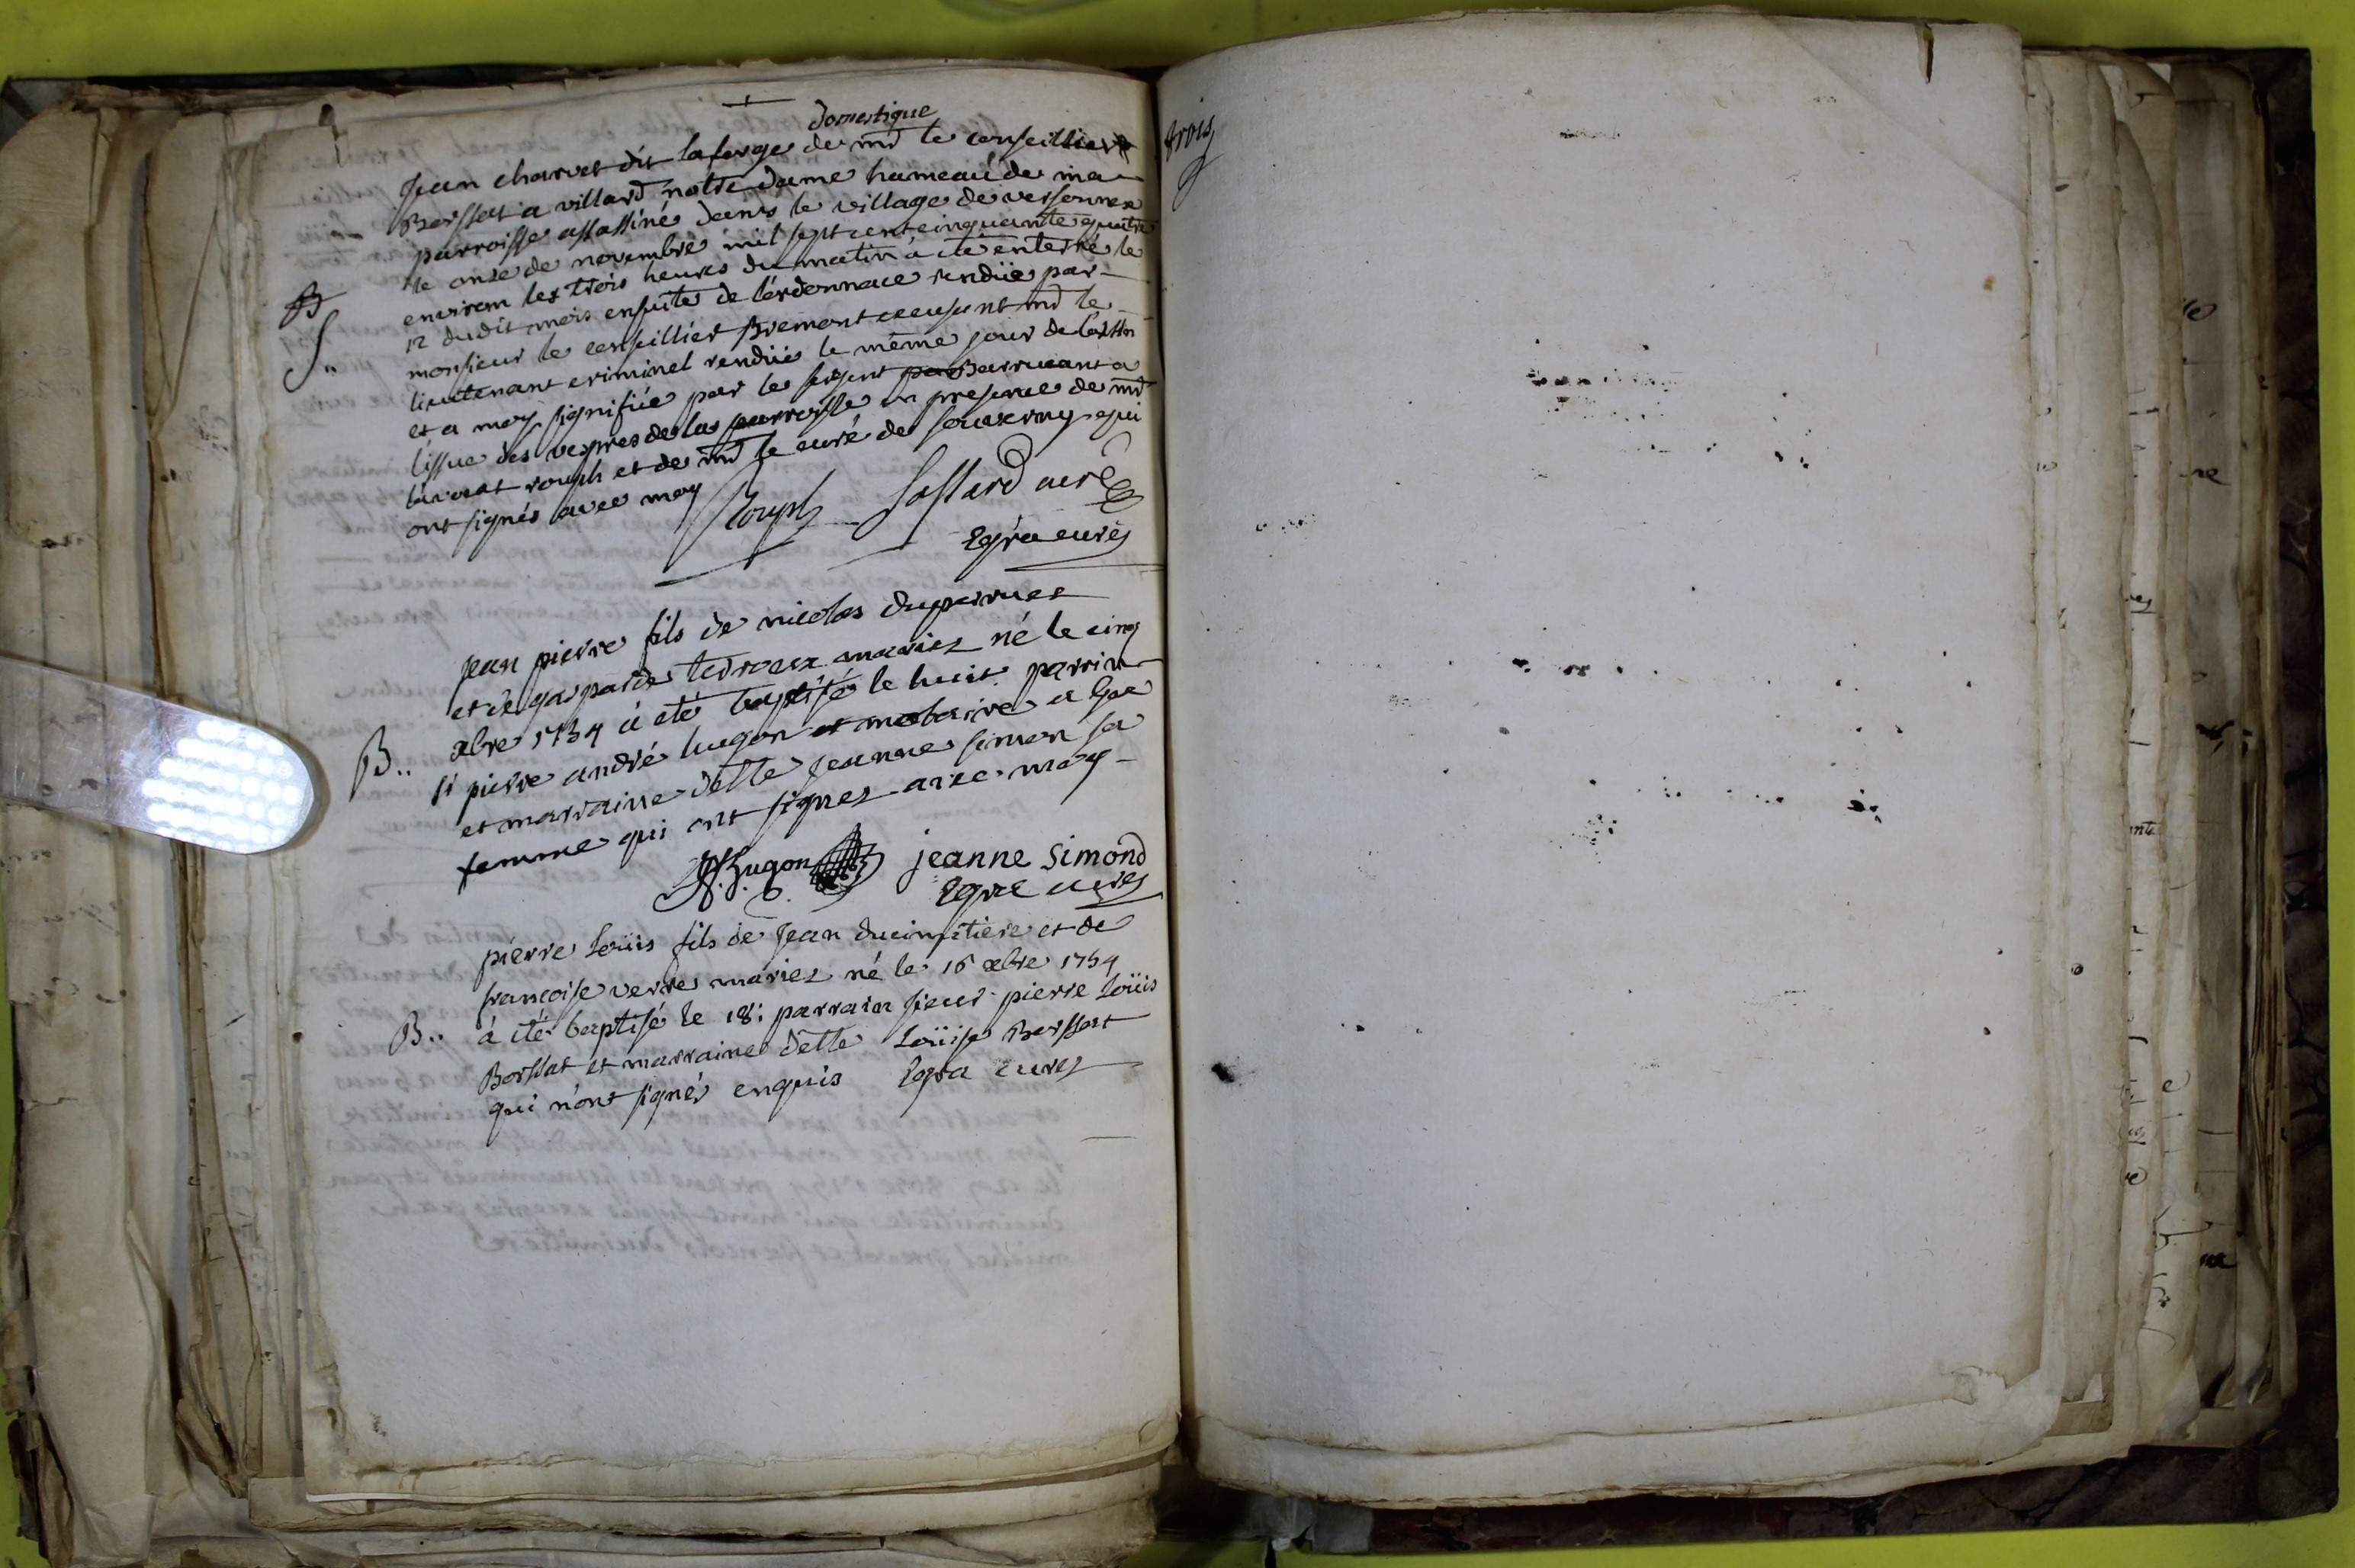 domestique
Jean charvet dit laforge de mr le conseillier
Borssat a villard notre dame hameau de ma
parroisse assassiné dans le village de versonnex
le onze de novembre mil sept cent cinquante quatre
environ les trois heures du matin à été enterré le
12 dudit mois ensuite de l'ordonnace rendüe par
monsieur le conseillier Bremont mr le
lieutenant criminel rendüe le même jour de
et a moy signifiée par le sergent Barrucant a
l'issue des vespres de la parroisse en presence de mr
l'avocat rouph et de mr le curé de sauverny qui
ont signés avec moy
Rouph Sastard curé
Egra curé
B
S..
Jean pierre fils de nicolas duperruez
et de gasparde tedroux mariez né le cinq
xbre 1754 à eté baptisé le huit parrin
si pierre andré hugon et notaire a Gex
et marraine dette Jeanne simon sa
femme qui ont signez avec moy
B..
Hugon jeanne simond
Egra curé
pierre Loüis fils de Jean ducimetiere et de
francoise verre mariez né le 16 xbre 1754
à été baptisé le 18: parrain sieur pierre Loüis
Borssat et marraine dette Loüise Borssat
qui n'ont signés enquis Egra curez
B..
trois